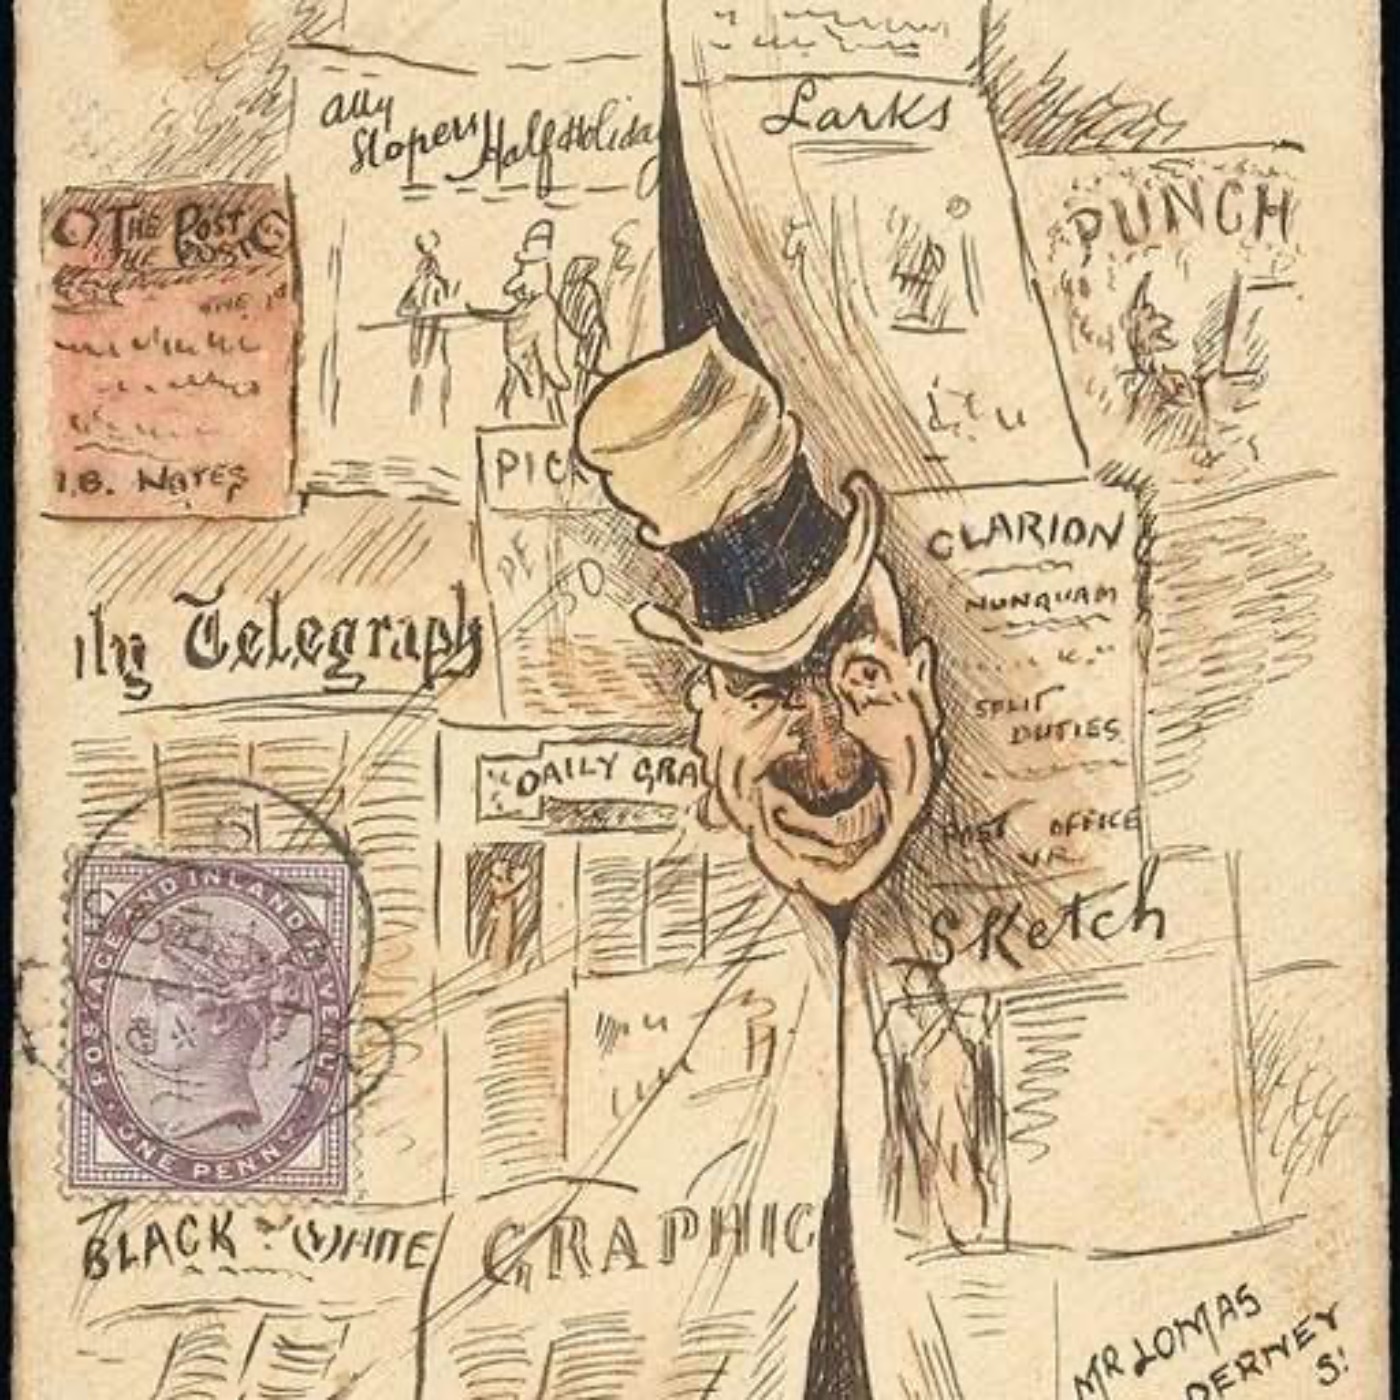 Ally
Slopers Half Holiday
Larks
PUNCH
THE POST
THE POST
I.B. NOTES
PICK
CLARION
NUNQUAM
ily Telegraph
SPLIT
DUTIES
DAILY GRA
POST OFFICE
VR
Sketch
POSTAGE AND INLAND REVENUE
ONE PENNY
BLACK & WHITE
GRAPHIC
MR LOMAS
DERNEY
S!